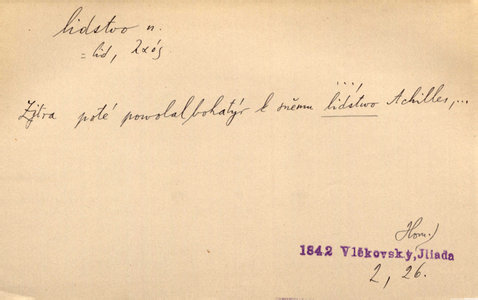 lidstvo n.
= lid,
Zjtra poté powolal bohatýr k sněmu lidstwo Achilles,...
Hom.)
1842 Vlčkovský, Iliada
2, 26.